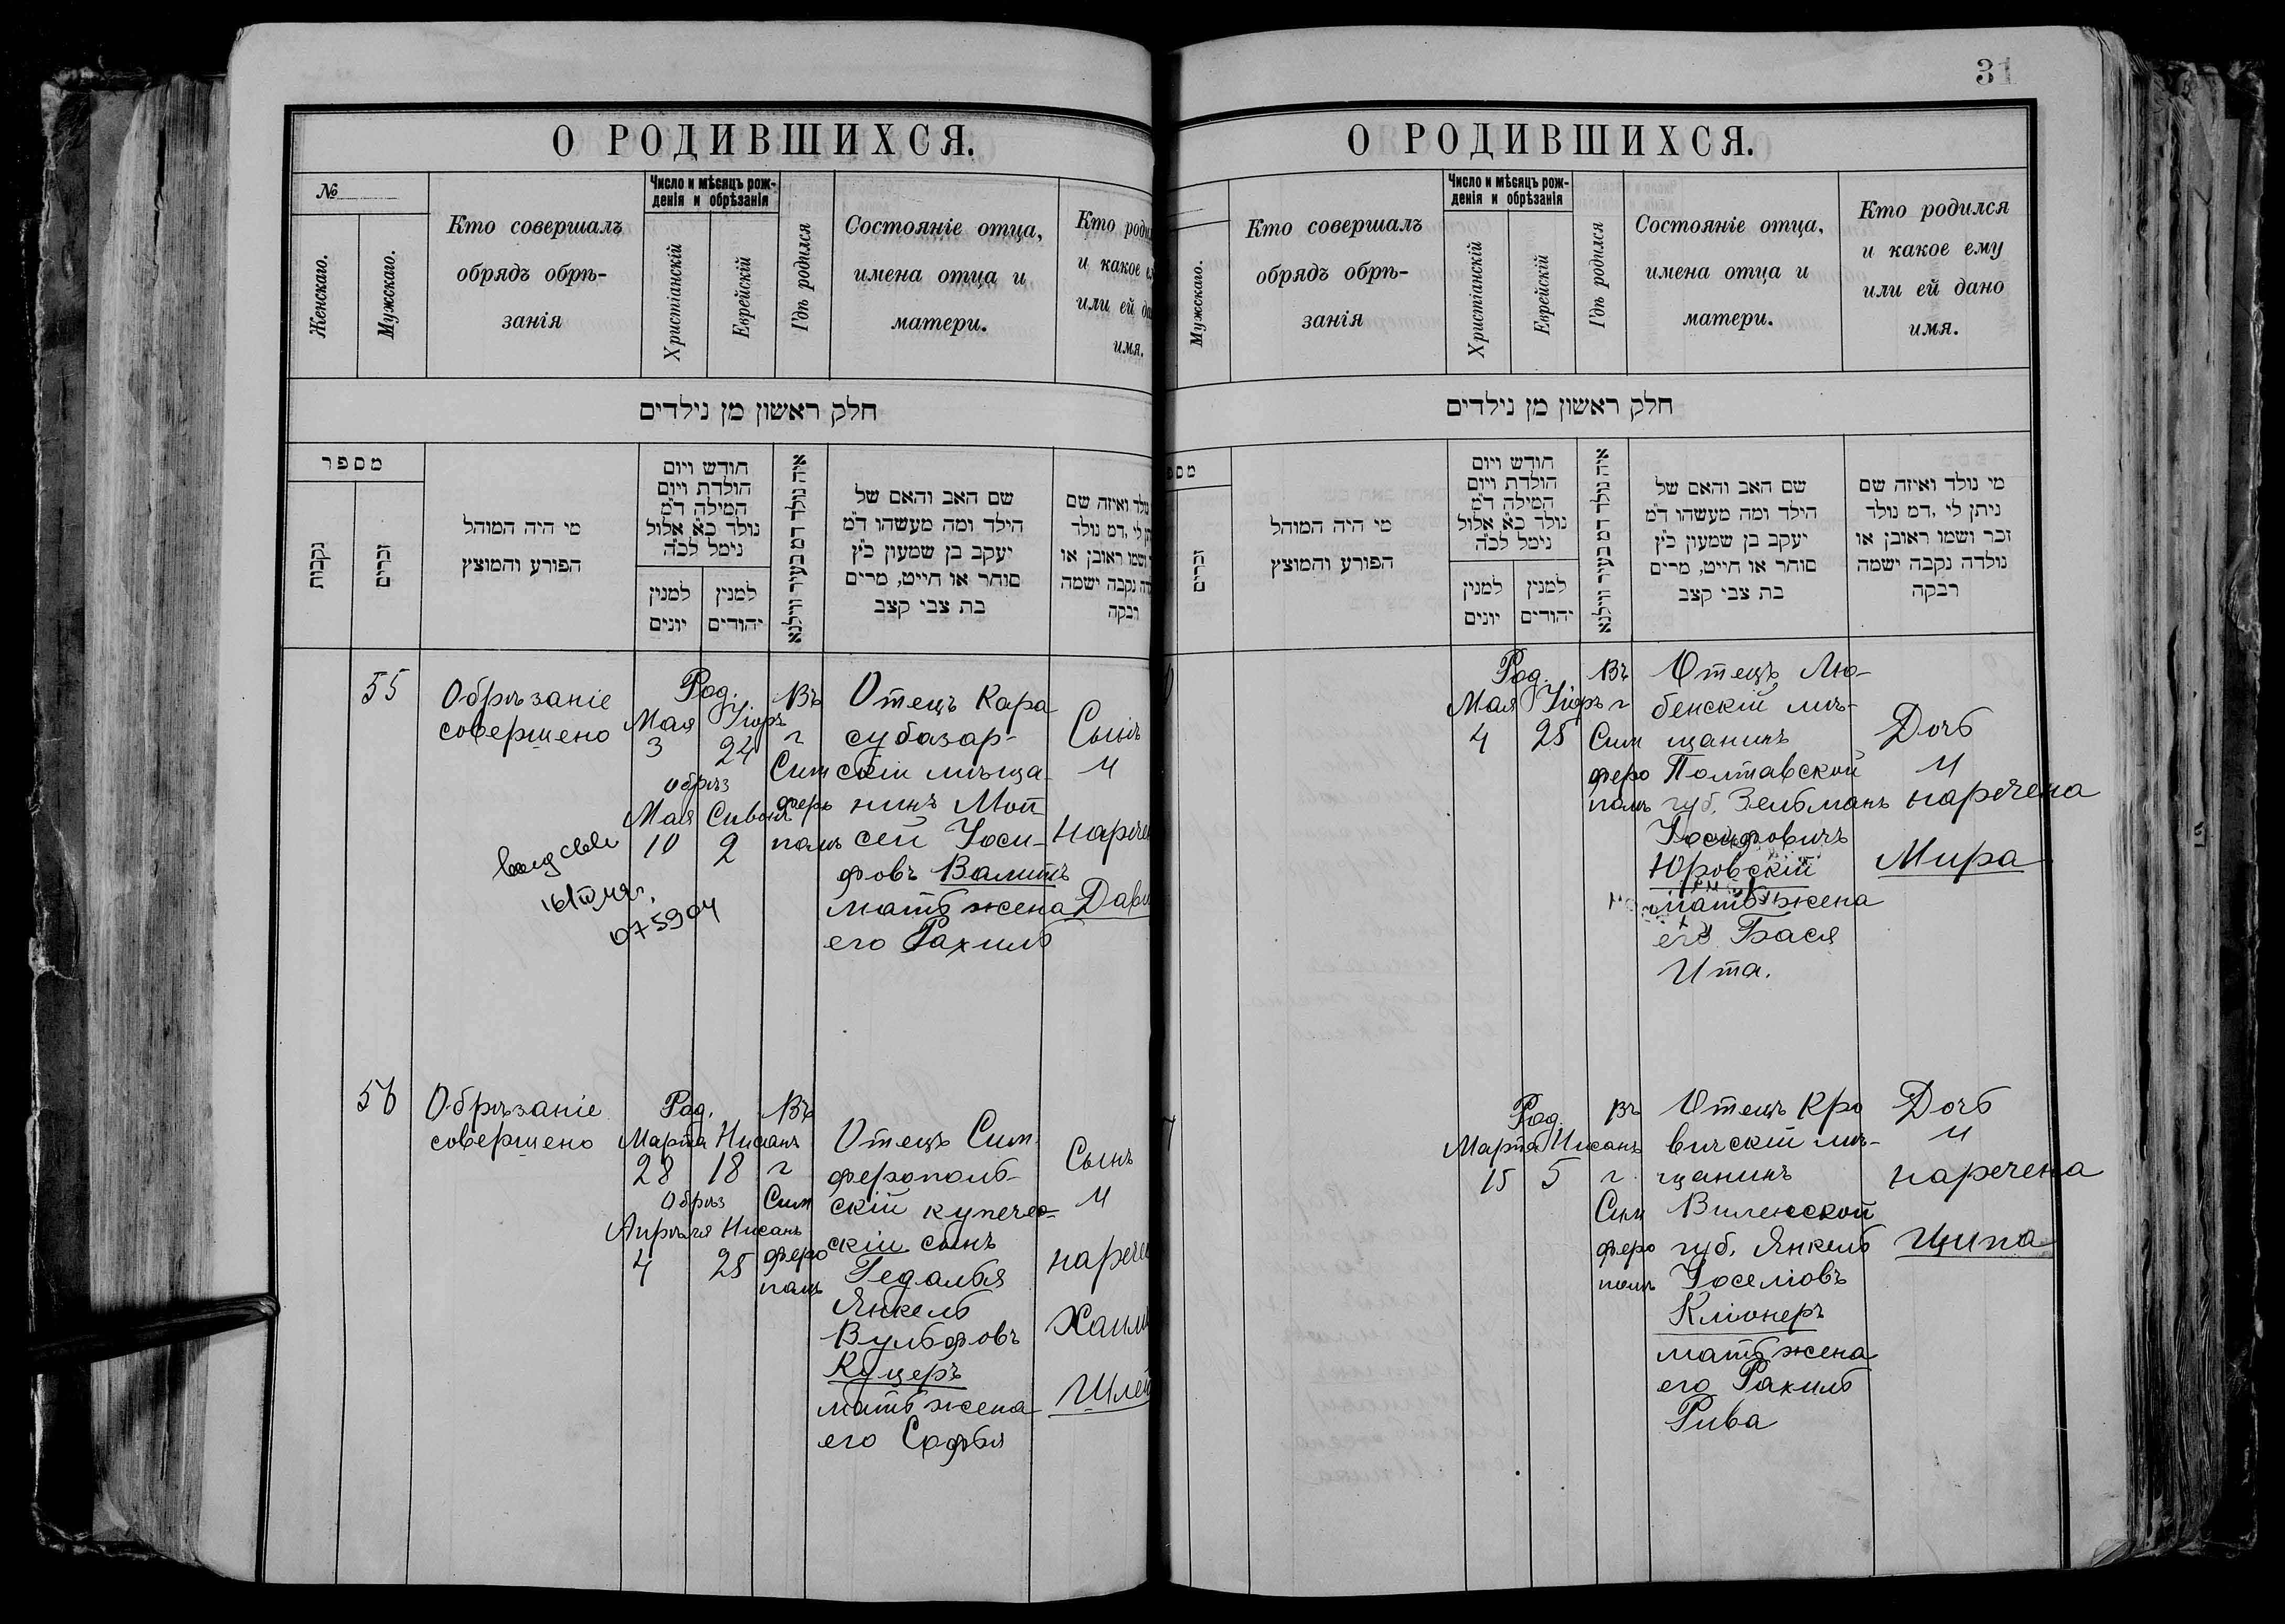 О РОДИВШИХСЯ.
№
Женскаго.
Мужскаго.
Кто совершалъ
обрядъ обрѣ-
занія
Число и мѣсяцъ рож-
денія и обрѣзанія
Христіанскій
Еврейскій
Гдѣ родился
Состояніе отца,
имена отца и
матери.
Кто роди
и какое е
или ей да
имя.
חלק ראשון מן נילדים
מספר
נקבות
זכרים
מי היה המוהל
הפורע והמוצץ
חודש ויום
הולדת ויום
המילה ד״מ
נולד כ״א אלול
נימל לכ״ה
למנין
יונים
למנין
יהודים
איה נולד דמ בעיר ווילנא
שם האב והאם של
הילד ומה מעשהו ד״מ
יעקב בן שמעון כ״ץ
סוחר או חייט, מרים
בת צבי קצב
נולד ואיזה שם
תן לי, דמ נולד
ושמו ראובן או
דה נקבה ישמה
רבקה
55
Обрѣзаніе
совершено
Род.
Мая Іюръ
3 24
Обрѣз
Мая Сиванъ
10 2
Въ
г
Сим
феро
полѣ
Отецъ Кара
субазар-
скій мѣща-
нинъ Мои
сей Іоси-
фовъ Валитъ
мать жена
его Рахиль
Сынъ
и
нарече
Дави
075904
56
Обрѣзаніе
совершено
Род.
Марта Нисанъ
28 18
Обрѣз
Апрѣля Нисанъ
4 25
Въ
г
Сим
феро
полѣ
Отецъ Сим-
ферополь-
скій купече-
скій сынъ
Гедалья
Янкель
Вульфовъ
Куцеръ
мать жена
его Софья
Сынъ
и
нарече
Хаим
Шле
31
О РОДИВШИХСЯ.
Мужскаго.
Кто совершалъ
обрядъ обрѣ-
занія
Число и мѣсяцъ рож-
денія и обрѣзанія
Христіанскій
Еврейскій
Гдѣ родился
Состояніе отца,
имена отца и
матери.
Кто родился
и какое ему
или ей дано
имя.
חלק ראשון מן נילדים
מספ
זכרים
מי היה המוהל
הפורע והמוצץ
חודש ויום
הולדת ויום
המילה ד״מ
נולד כ״א אלול
נימל לכ״ה
למנין
יונים
למנין
יהודים
איה נולד דמ בעיר ווילנא
שם האב והאם של
הילד ומה מעשהו ד״מ
יעקב בן שמעון כ״ץ
סוחר או חייט, מרים
בת צבי קצב
מי נולד ואיזה שם
ניתן לי, דמ נולד
זכר ושמו ראובן או
נולדה נקבה ישמה
רבקה
Род.
Мая Іюръ
4 25
Въ
г
Сим
феро
полѣ
Отецъ Лю-
бенскій мѣ-
щанинъ
Полтавской
губ. Зельманъ
Іосифовичъ
Юровскій
мать жена
его Бася
Ита.
Дочь
и
наречена
Мира
Род.
Марта Нисанъ
15 5
Въ
г.
Сим
феро
полѣ
Отецъ Кро
вичскій мѣ-
щанинъ
Виленской
губ. Янкель
Іоселіовъ
Кліонеръ
мать жена
его Рахиль
Рива
Дочь
и
наречена
Ципа